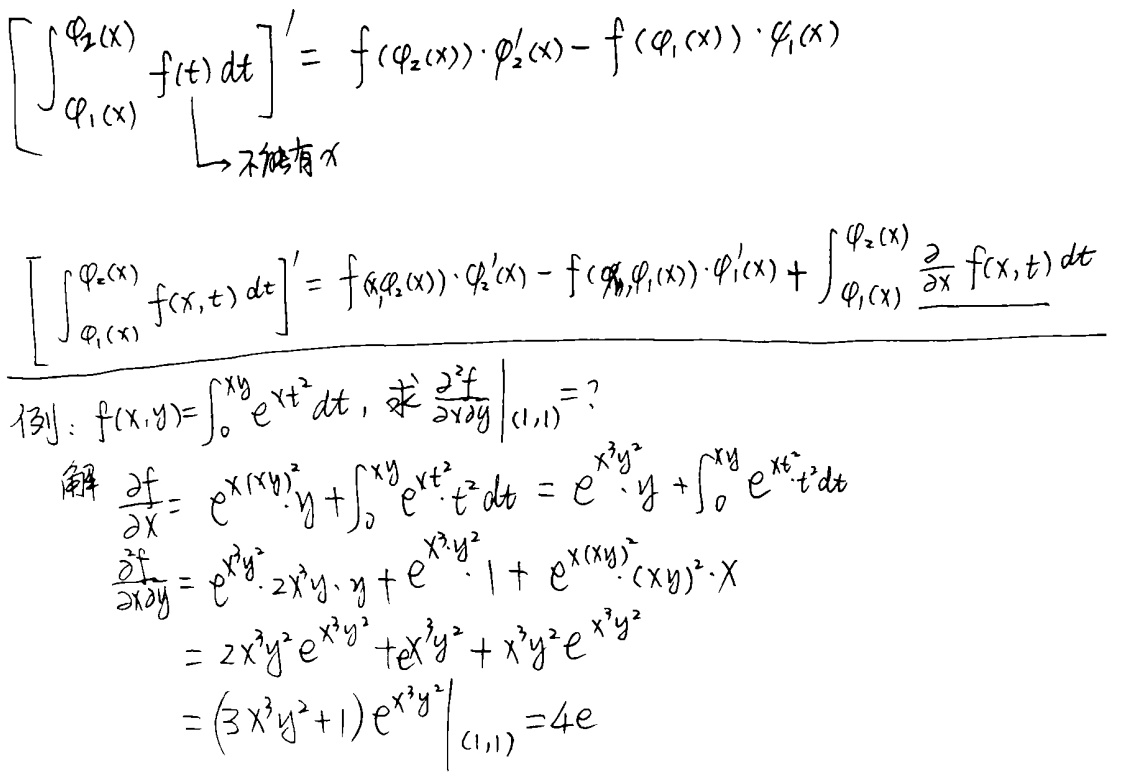 [∫_{φ₁(x)}^{φ₂(x)} f(t) dt]′ = f(φ₂(x))·φ₂′(x) − f(φ₁(x))·φ₁′(x)
↳ 不能有x
[∫_{φ₁(x)}^{φ₂(x)} f(x,t) dt]′ = f(x,φ₂(x))·φ₂′(x) − f(x,φ₁(x))·φ₁′(x) + ∫_{φ₁(x)}^{φ₂(x)} ∂/∂x f(x,t) dt
例: f(x,y)=∫₀^{xy} e^{xt²} dt, 求 ∂²f/∂x∂y |_(1,1) = ?
解 ∂f/∂x = e^{x(xy)²}·y + ∫₀^{xy} e^{xt²}·t² dt = e^{x³y²}·y + ∫₀^{xy} e^{xt²}·t² dt
∂²f/∂x∂y = e^{x³y²}·2x³y·y + e^{x³·y²}·1 + e^{x(xy)²}·(xy)²·x
= 2x³y² e^{x³y²} + e^{x³y²} + x³y² e^{x³y²}
= (3x³y²+1) e^{x³y²} |_(1,1) = 4e